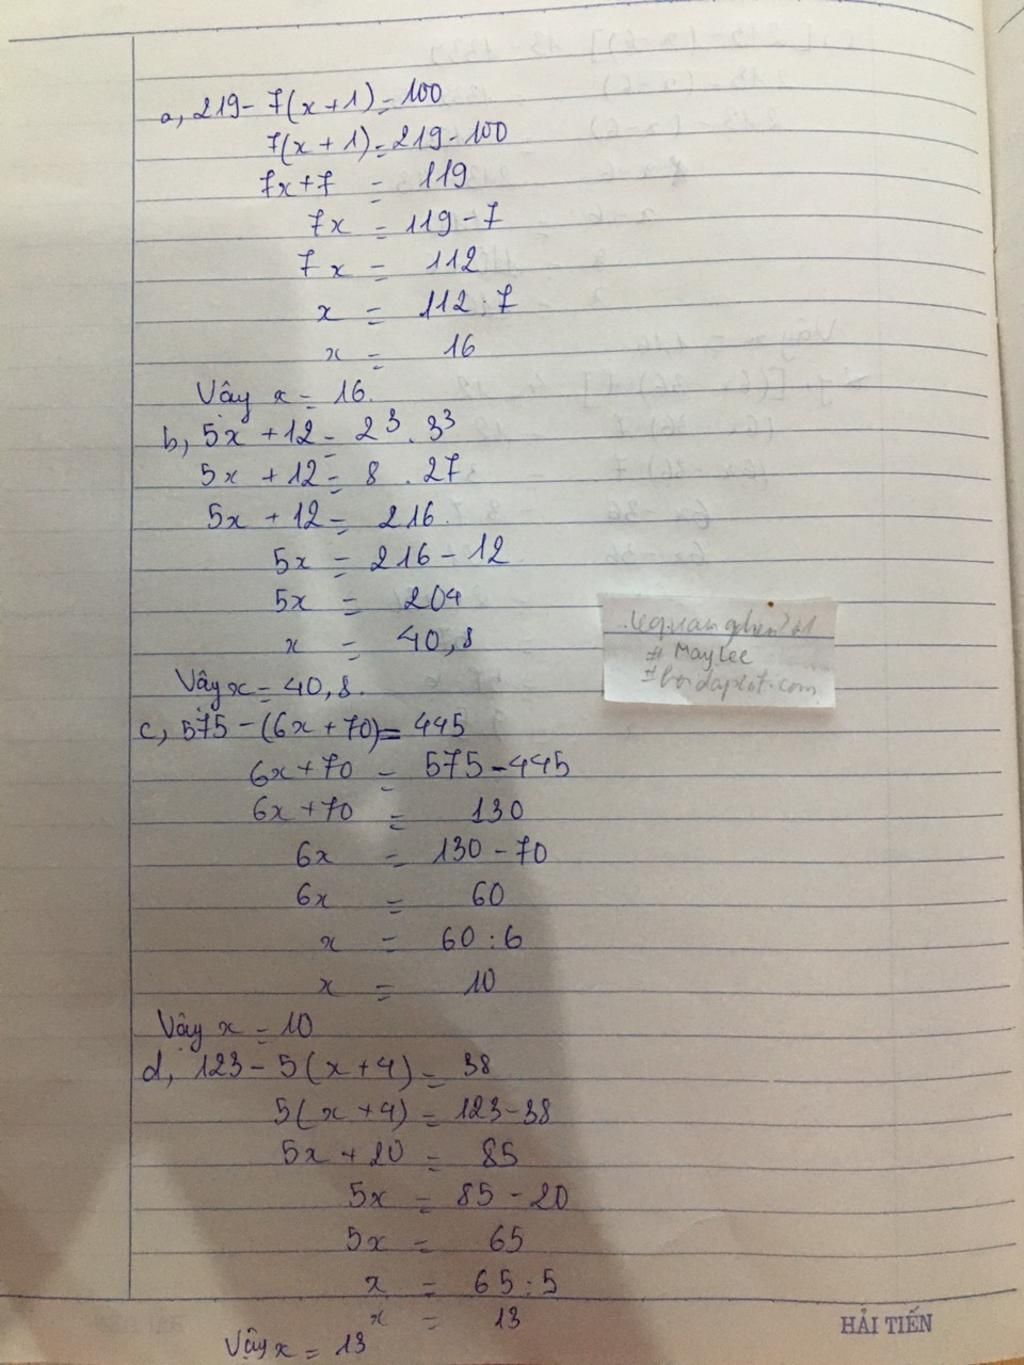 a, 219 - 7(x + 1) = 100
7(x + 1) = 219 - 100
7x + 7 = 119
7x = 119 - 7
7x = 112
x = 112 : 7
x = 16
Vây x = 16.
b, 5x + 12 = 2³ . 3³
5x + 12 = 8 . 27
5x + 12 = 216.
5x = 216 - 12
5x = 204
x = 40,8
Vây x = 40,8.
# MayLee
c, 575 - (6x + 70) = 445
6x + 70 = 575 - 445
6x + 70 = 130
6x = 130 - 70
6x = 60
x = 60 : 6
x = 10
Vây x = 10
d, 123 - 5(x + 4) = 38
5(x + 4) = 123 - 38
5x + 20 = 85
5x = 85 - 20
5x = 65
x = 65 : 5
x = 13
Vậy x = 13
HẢI TIẾN